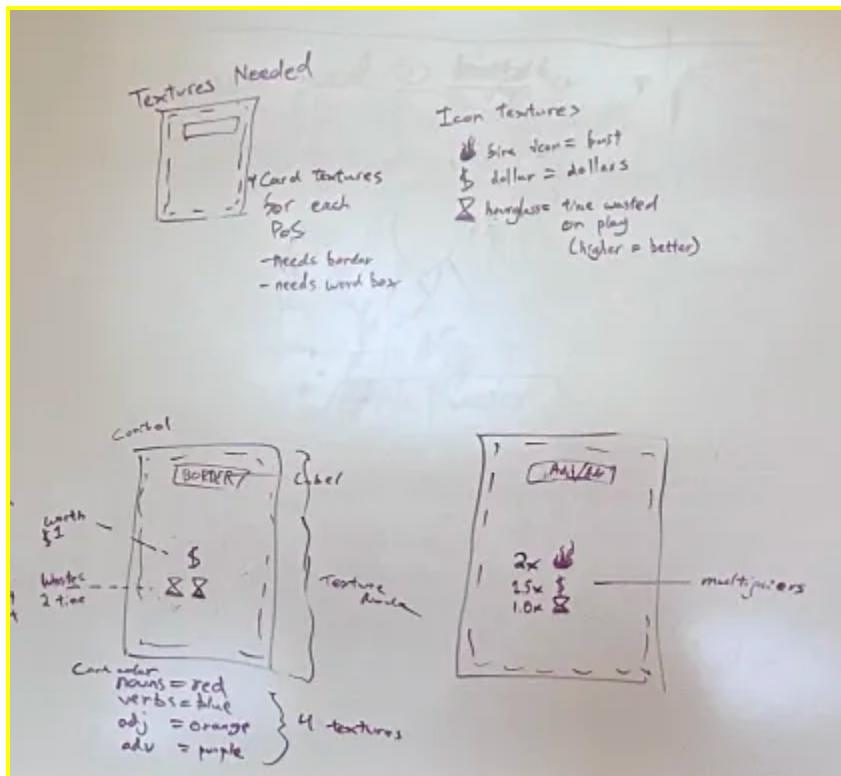 Textures Needed
Card textures
for each
PoS
- needs border
- needs word box
Icon textures
fire icon = bust
$ dollar = dollars
hourglass = time wasted
on play
(higher = better)
Control
BORDER
Label
worth
$1
$
Wastes
2 time
Texture
Card color
nouns = red
verbs = blue
adj = orange
adv = purple
4 textures
Adj/Adv
2x
1.5x $
1.0x
multipliers